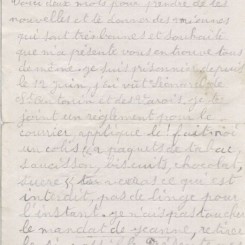 deux mots pour prendre de vos
nouvelles et le donner des miennes
qui sont très bonnes et souhaite
que ma présente vous en trouve tous
de même. je suis prisonnier depuis
le 12 juin, j'en voit Siémond de
St et des je te
joint un reglement pour le
courrier applique le!
un colis 10 paquets de tabac,
saucisson, biscuits, chocolat,
sucre ce qui est
interdit, pas de linge pour
l'instant. je n'ai pas toucher
le mandat de jeanne, retires
le